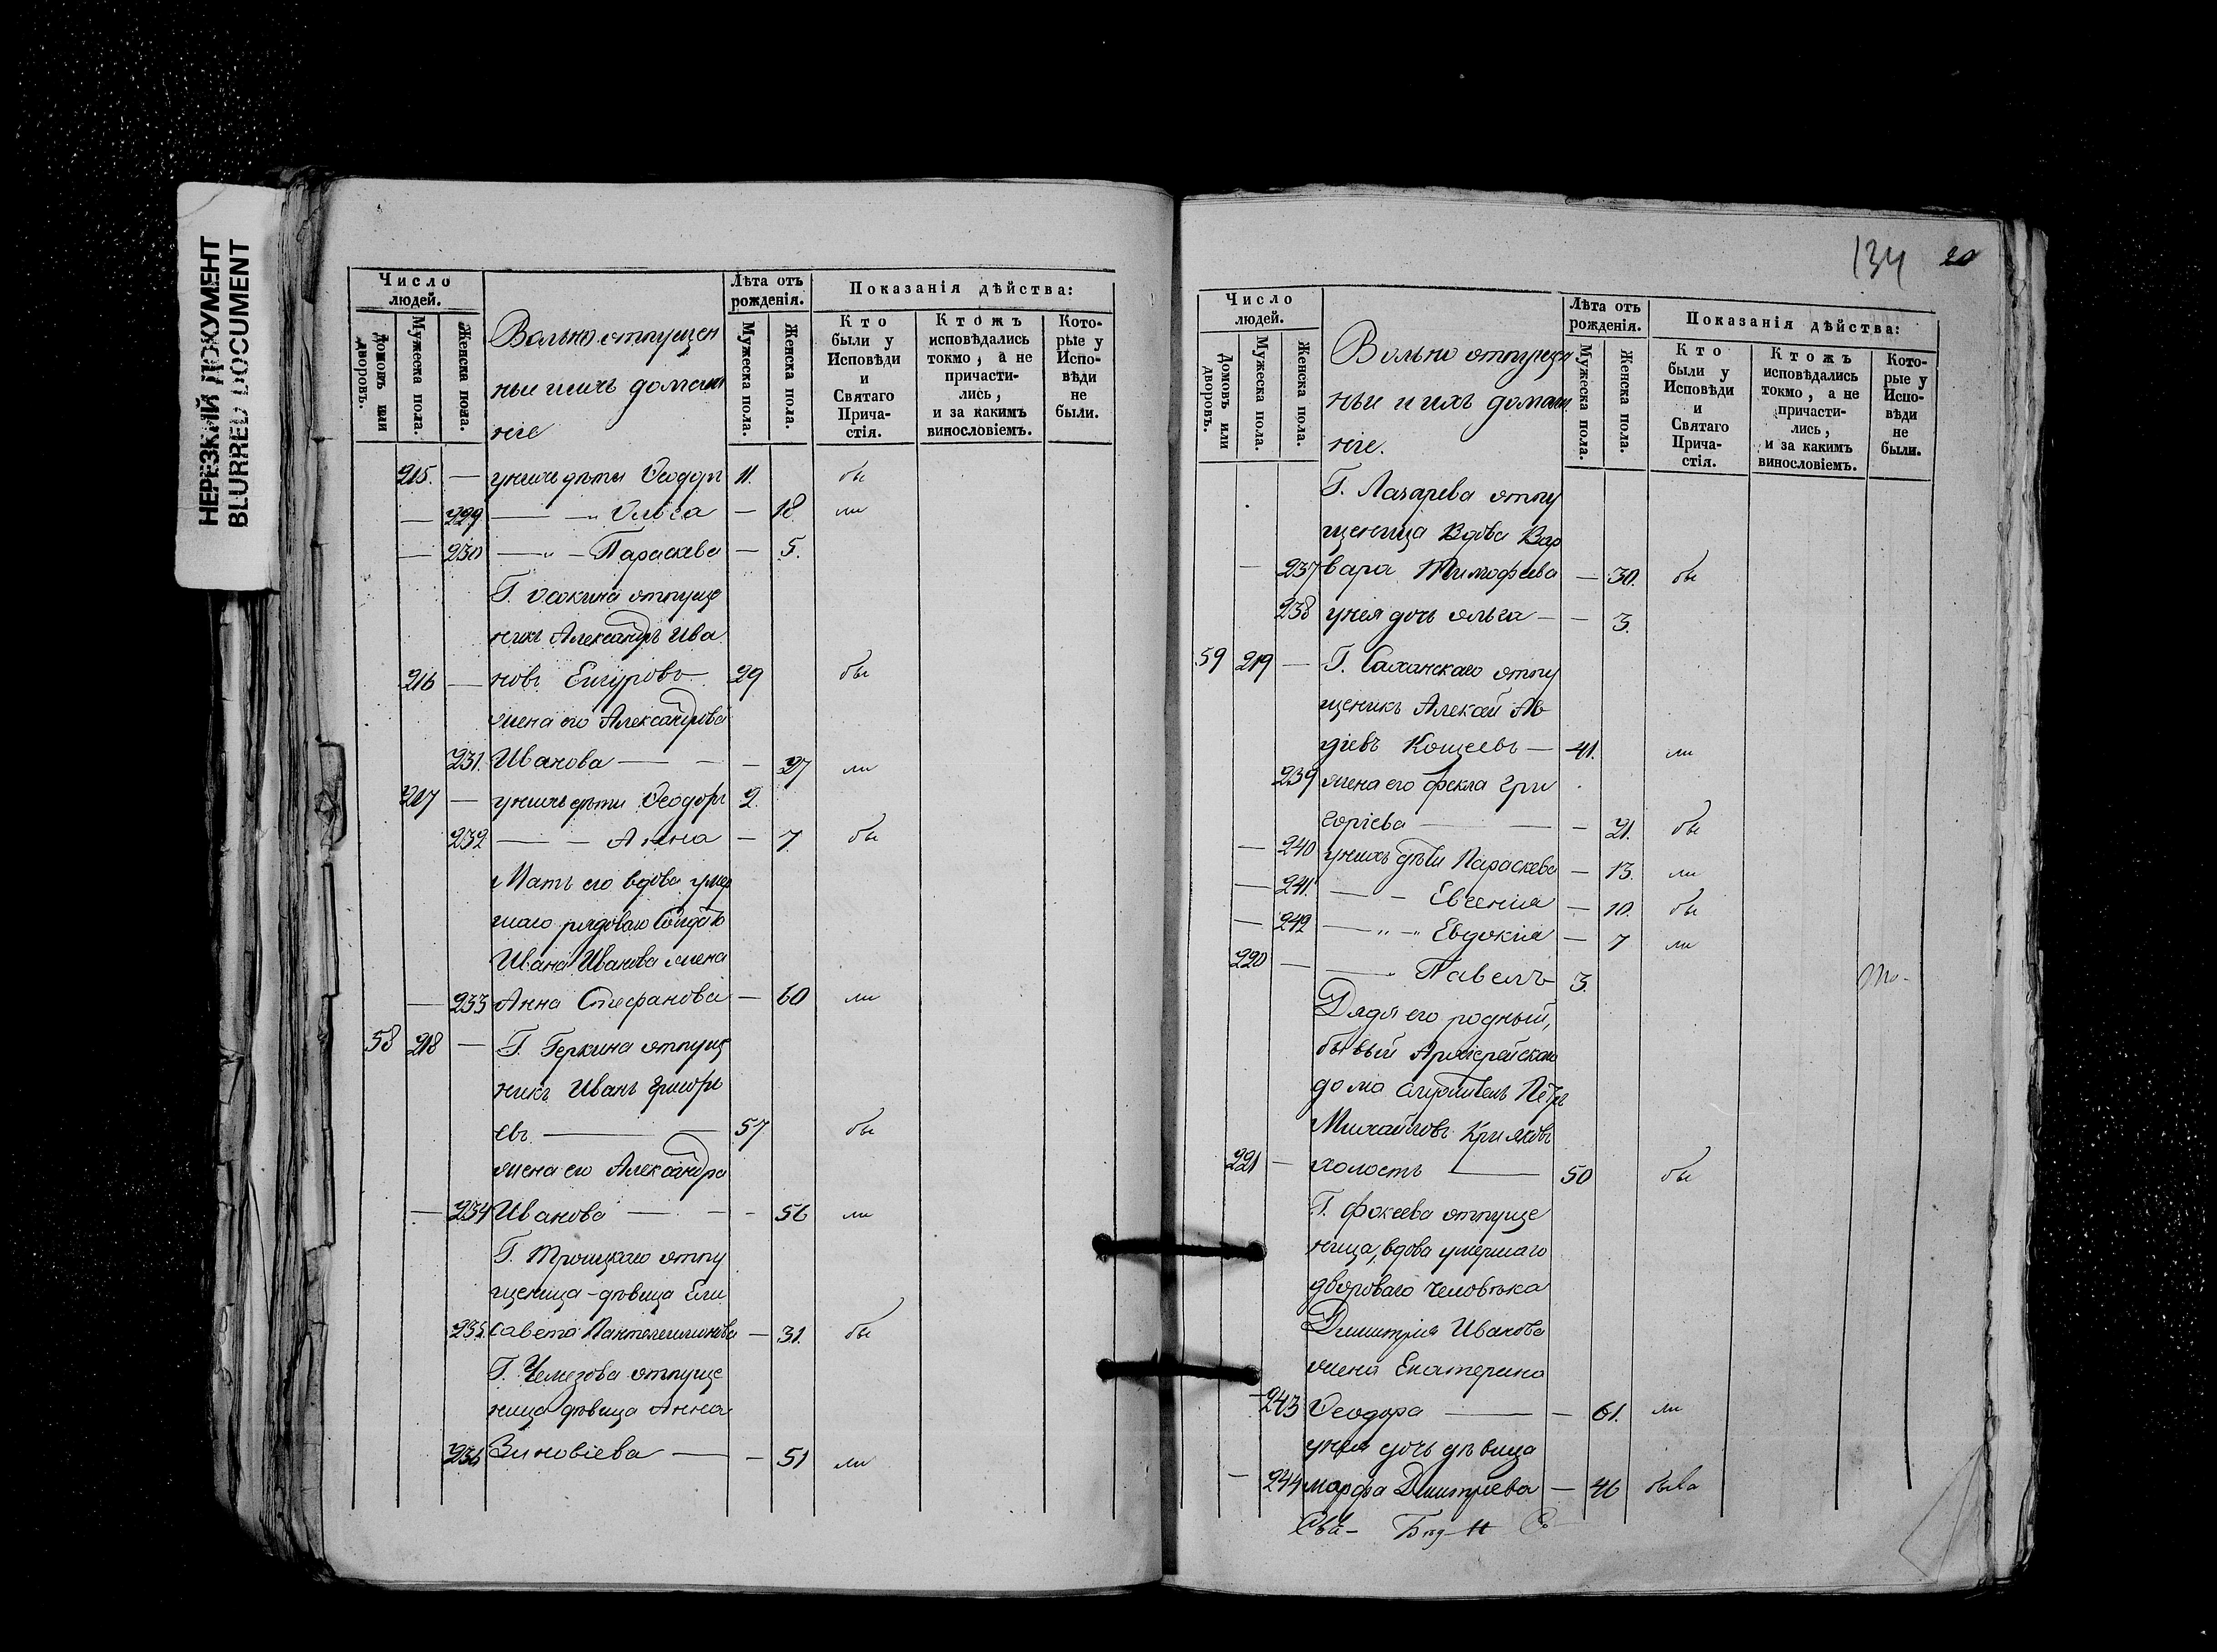 НЕРЕЗКИЙ ДОКУМЕНТ
BLURRED DOCUMENT
Число людей.
Домовъ или дворовъ.
Мужеска пола.
Женска пола.
Вольноотпущен
ныи ихъ домаш
ніе
Лѣта отъ рожденія.
Мужеска пола.
Женска пола.
Показанія дѣйства:
Кто были у Исповѣди и Святаго Причастія.
Ктожъ исповѣдались токмо, а не причастились, и за какимъ винословіемъ.
Которые у Исповѣди не были.
215. — унихъ дѣти Ѳеодоръ 11. бы
— 229 — „ Ольга — 18. ли
— 230 — „ — Параскева — 5.
отпуще
никъ Александръ Ива
216 — новъ 29 бы
жена его Александрова
231. Иванова — — — 27 ли
217 — унихъ дѣти Ѳеодоръ 2.
232 — — Анна — 7 бы
Мать его вдова умер
шаго рядоваго Солдата
Ивана Иванова жена
— 233 Анна Стефанова — 60 ли
58 218 — Г. Геркина отпущ
никъ Иванъ Григорь
евъ — — 57 бы
жена его Александра
— 234 Иванова — — — 56 ли
Г. Троицкаго отпу
щеница - дѣвица Ели
235. савета Пантелеимонова — 31. бы
Г. Чемезова отпуще
ница дѣвица Анна
236 Зиновіева — — 51 ли
134 20
Число людей.
Домовъ или дворовъ.
Мужеска пола.
Женска пола.
Вольноотпущен
ныи и ихъ домаш
ніе.
Лѣта отъ рожденія.
Мужеска пола.
Женска пола.
Показанія дѣйства:
Кто были у Исповѣди и Святаго Причастія.
Ктожъ исповѣдались токмо, а не причастились, и за какимъ винословіемъ.
Которые у Исповѣди не были.
Г. Лазарева отпу
щеница Вдова Вар
— 237 вара Тимофеева — 30. бы
238 унея дочь Ольга — — 3.
59 219 — Г. Саханскаго отпу
щеникъ Алексѣй Ав
діевъ Кощеевъ — 41. ли
239 жена его Фекла Гри
горіева — — — 21. бы
— 240 унихъ дѣти Параскева — 13. ли
— 241. — — Евгенія — 10. бы
— 242 — „ — „ Евдокія — 7 ли
220 — — Павелъ 3.
Дядя его родный,
бывый Архіерейскаго
дома служитель Петръ
Михайловъ
221 — холостъ — 50 бы
Г. Фокеева отпуще
ница, вдова умершаго
двороваго человѣка
Димитрія Иванова
жена Екатерина
— 243 Ѳеодора — — 61. ли
унея дочь дѣвица
— 244 Марфа Димитріева — 46 была